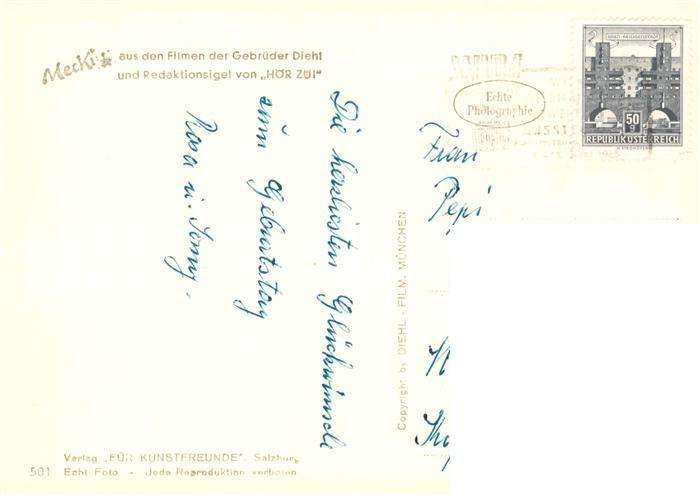 Mecki
aus den Filmen der Gebrüder Diehl
und Redaktionsigel von „HÖR ZU!"
Die herzlichsten Glückwünsche
zum Geburtstag
Rosa u.
Copyright by DIEHL - FILM, MÜNCHEN
Echte
Photographie
50
g
REPUBLIK ÖSTERREICH
Frau
Pepi
Verlag „FÜR KUNSTFREUNDE", Salzburg
501 Echt Foto - Jede Reproduktion verboten